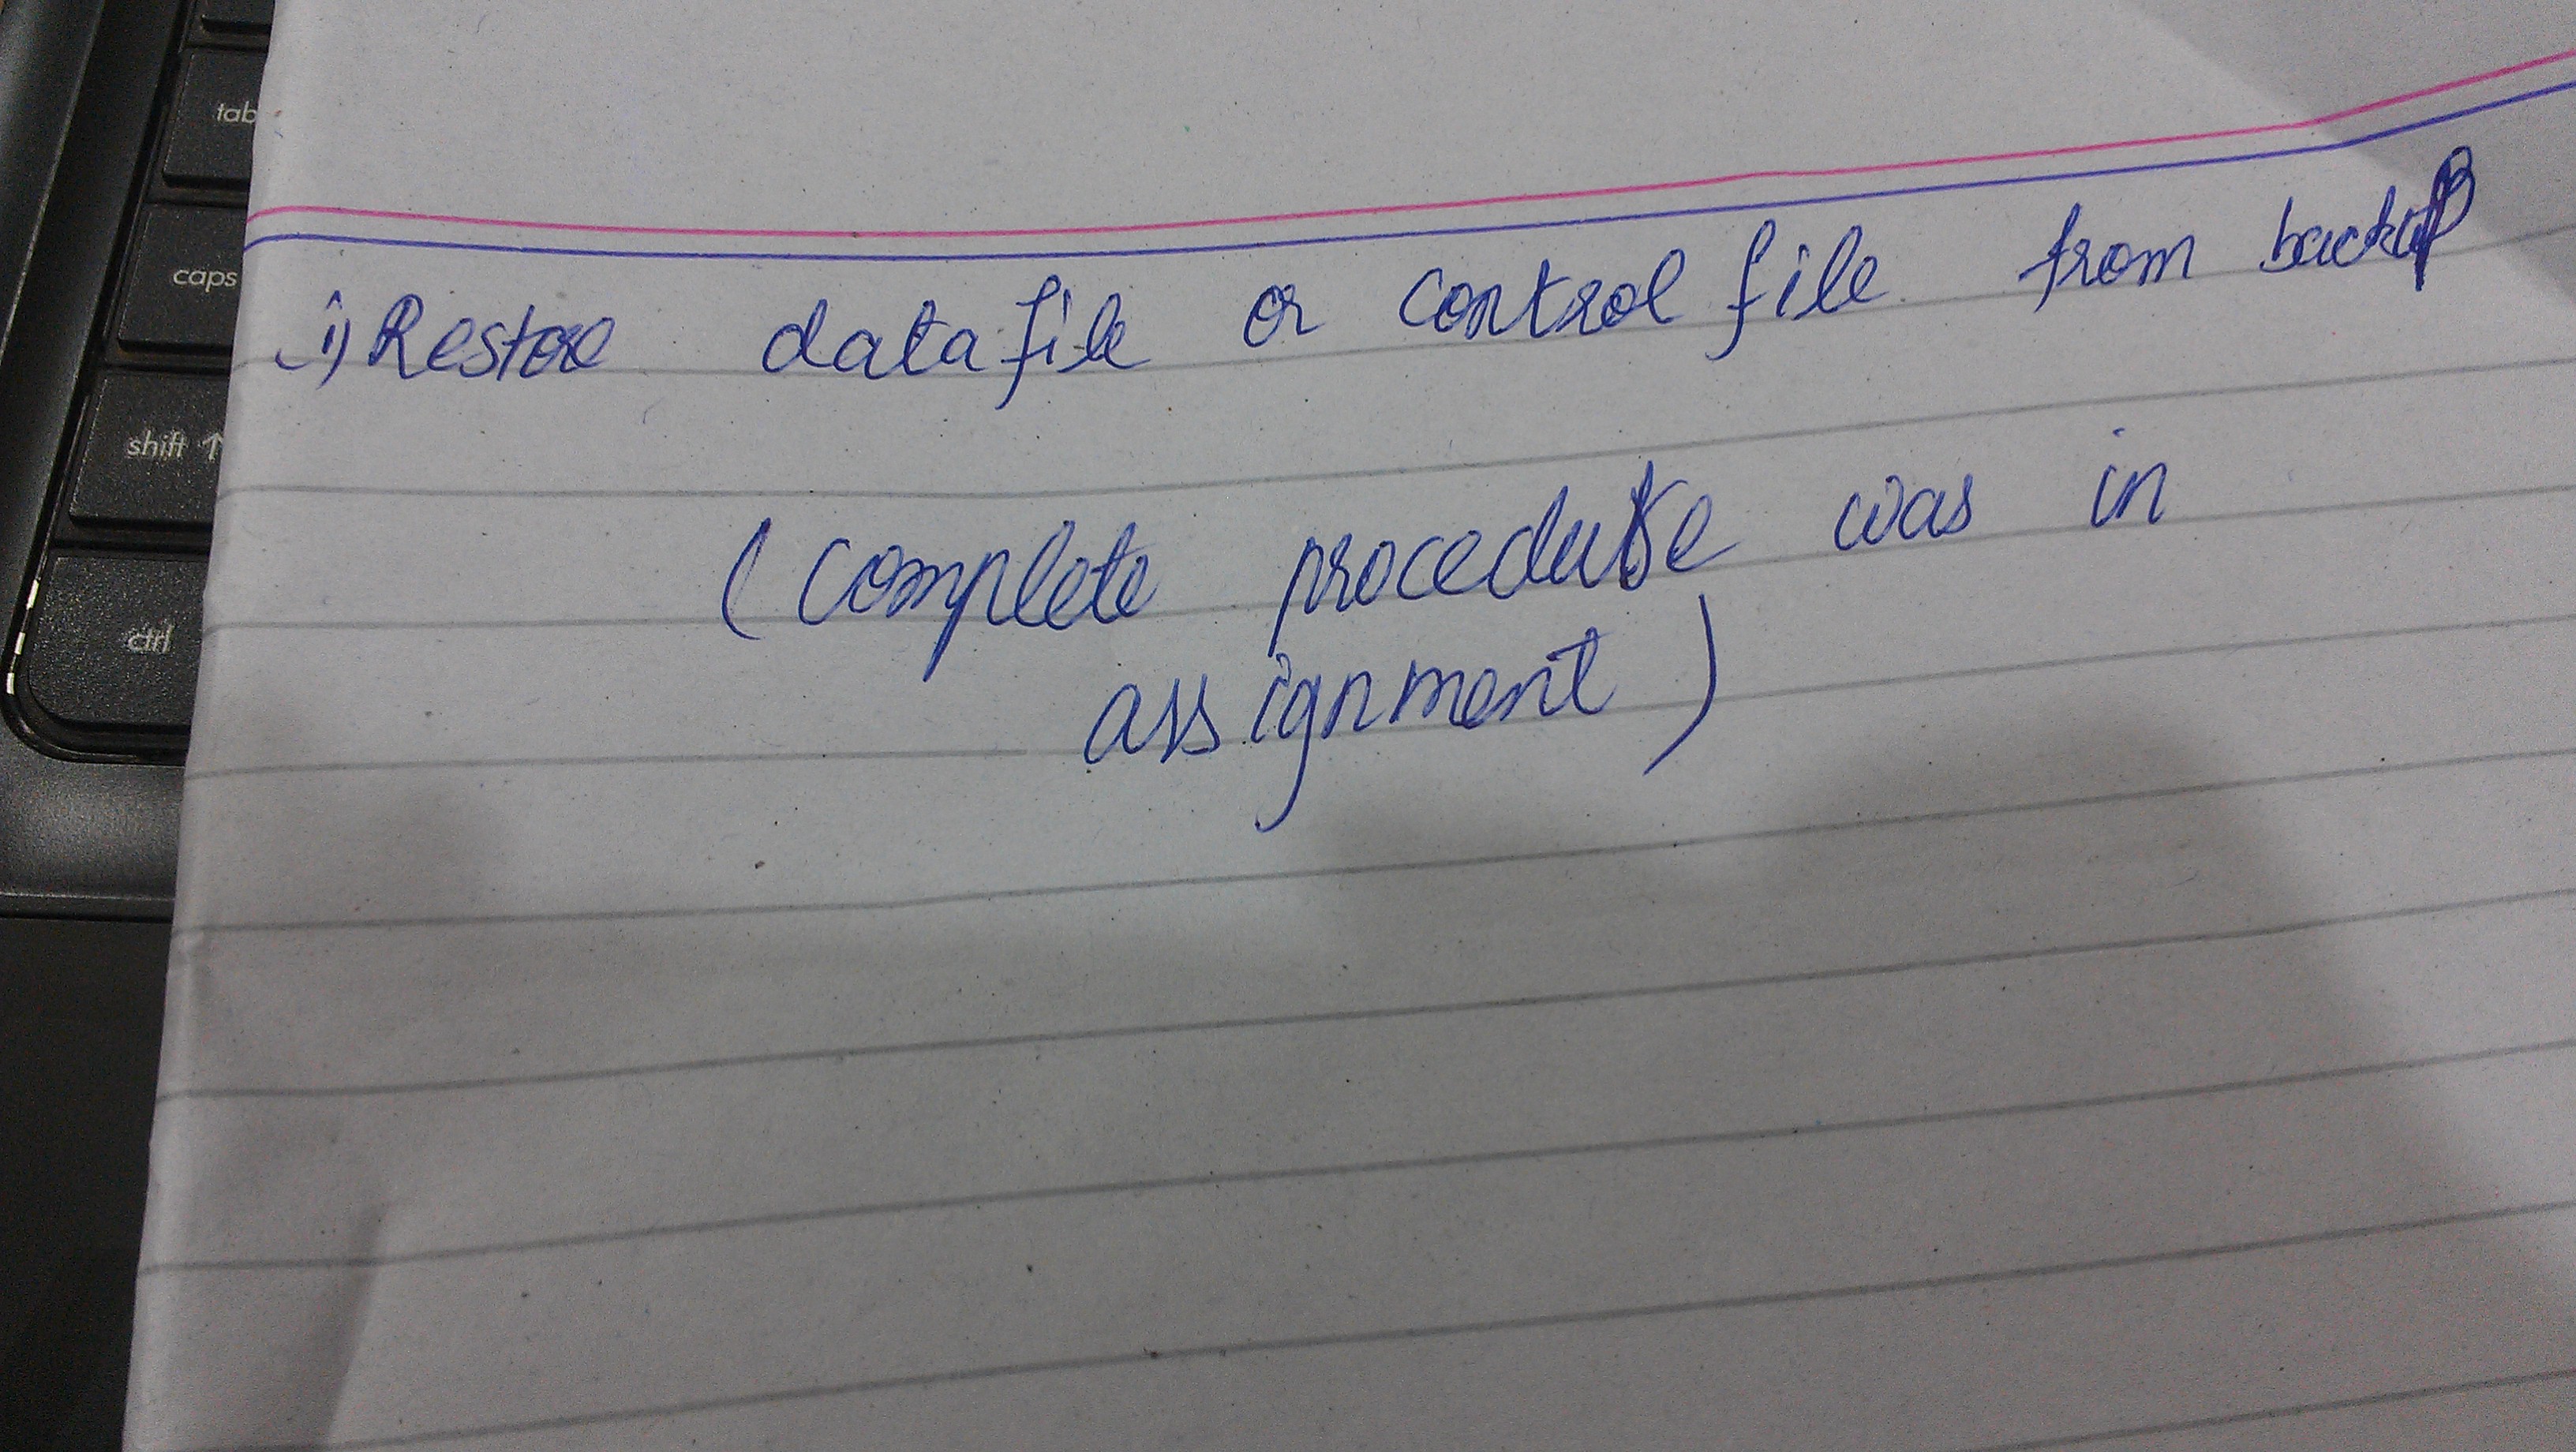 tab
caps
shift ↑
ctrl
i) Restore datafile or control file from backup
(complete procedure was in
assignment)